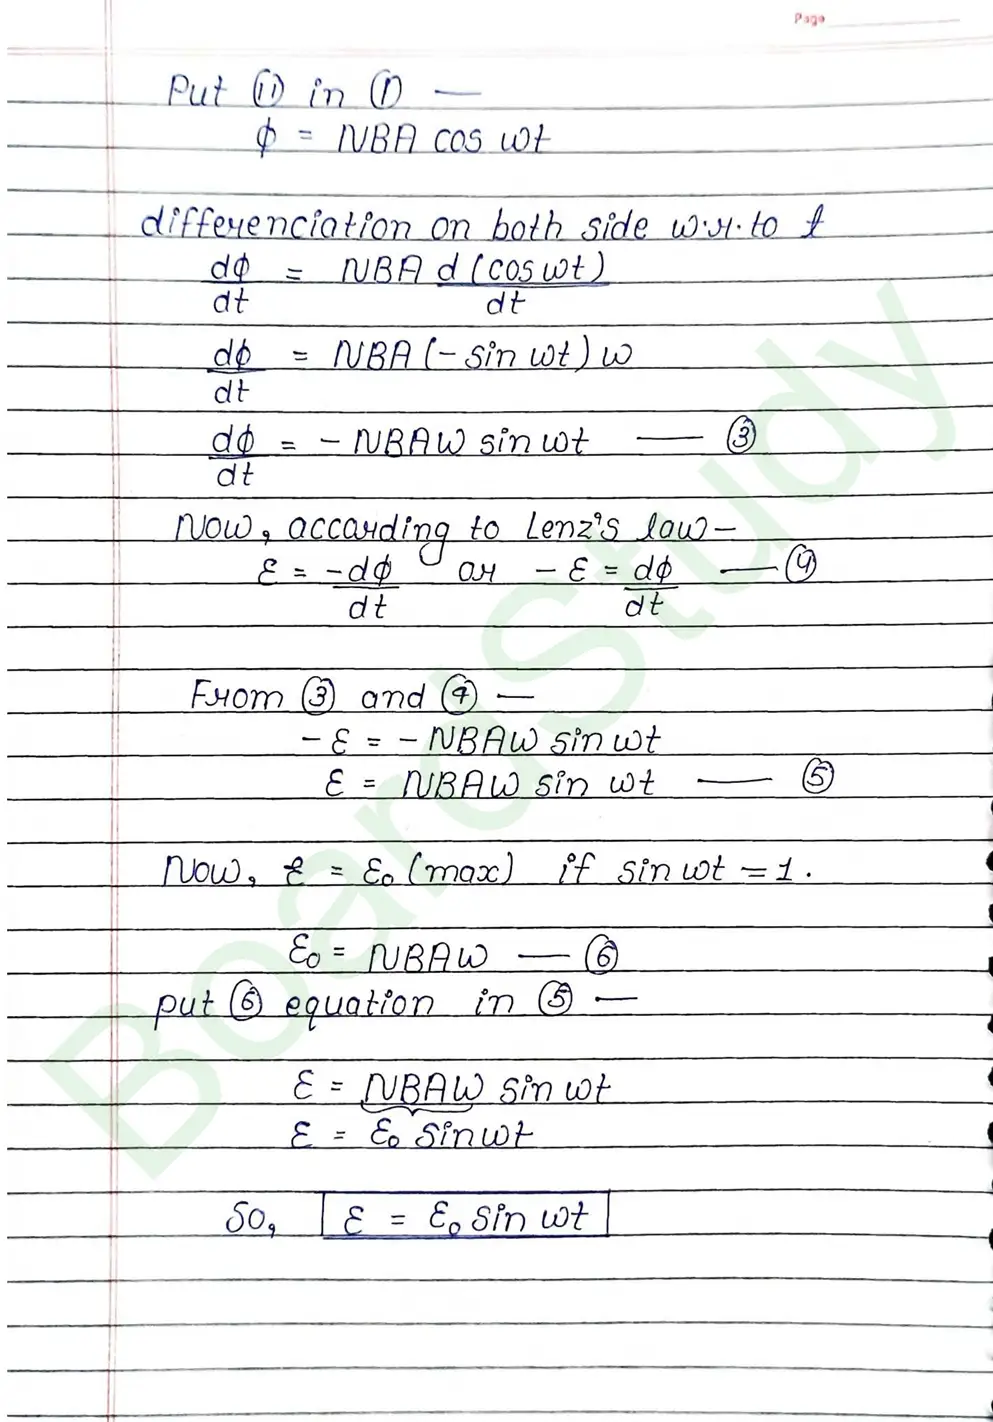 Page
Put ⑪ in ① —
ϕ = NBA cos ωt
differenciation on both side w.r.to t
dϕ/dt = NBA d(cos ωt)/dt
dϕ/dt = NBA(- sin ωt) ω
dϕ/dt = - NBAω sin ωt — ③
Now, according to Lenz's law -
ε = -dϕ/dt or - ε = dϕ/dt — ④
From ③ and ④ —
- ε = - NBAω sin ωt
ε = NBAω sin ωt — ⑤
Now, ε = ε₀ (max) if sin ωt = 1.
ε₀ = NBAω — ⑥
put ⑥ equation in ⑤ —
ε = NBAω sin ωt
ε = ε₀ sin ωt
So, ε = ε₀ sin ωt
BoardStudy